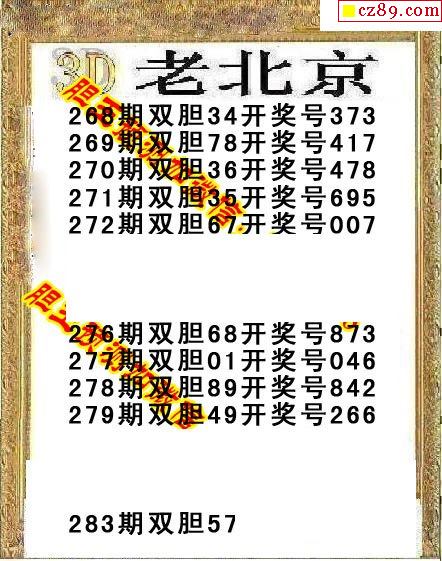 cz89.com
3D 老北京
268期双胆34开奖号373
269期双胆78开奖号417
270期双胆36开奖号478
271期双胆35开奖号695
272期双胆67开奖号007
276期双胆68开奖号873
277期双胆01开奖号046
278期双胆89开奖号842
279期双胆49开奖号266
283期双胆57